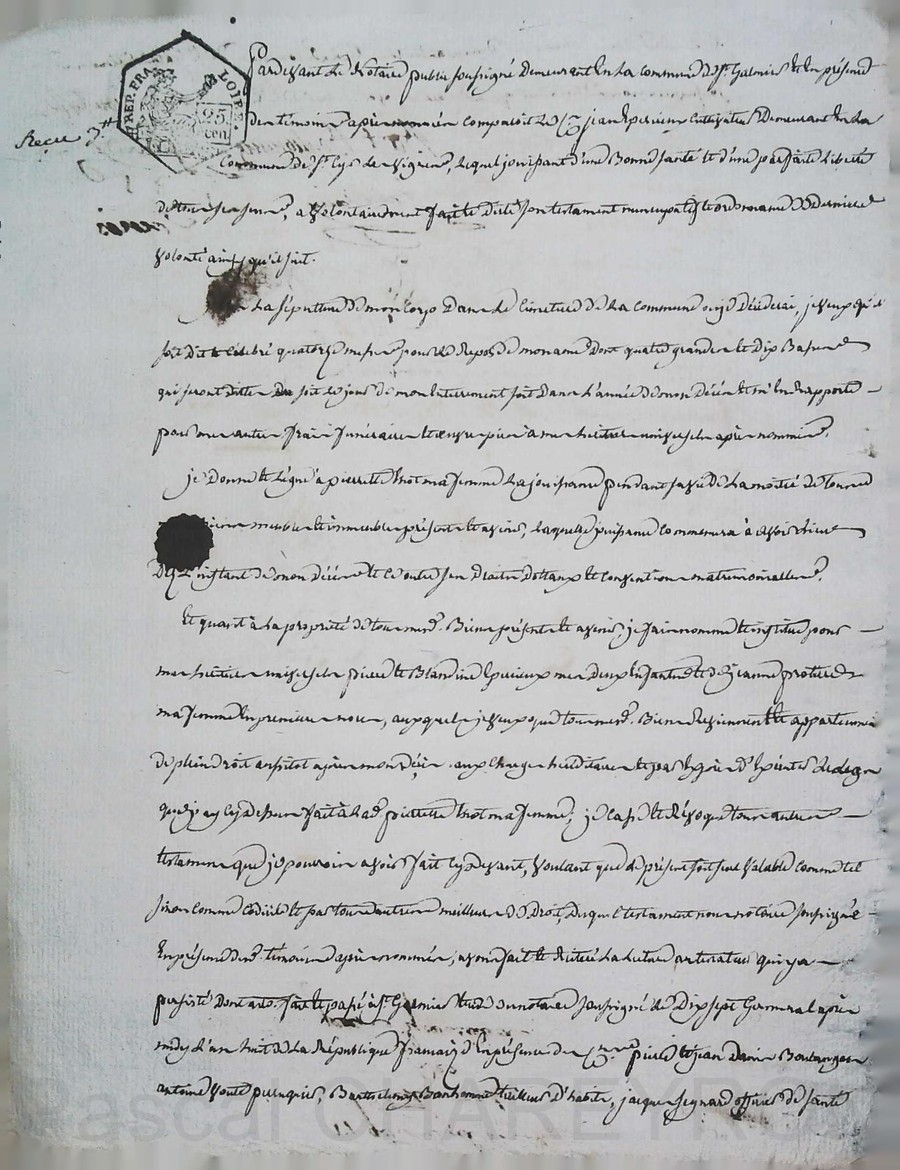 REP. FRA. LOIRE
25 cen
Recu 3 #
Pardevant Le Notaire public soussigné demeurant En La commune de St Galmier Et En présence
des témoins après nommés comparoit Le Cn jean Epercieux Cultivateur Demeurant En La
Commune de St Cyr Les Vignes, Lequel jouissant d'une Bonne santé Et d'une parfaite Liberté
de tous ses sens, a Volontairement fait Et dicté son testament nuncupatif Et ordonnance De derniere
Volonté ainsy qu'il suit.
La sépulture de mon Corps Dans Le Cimetiere de La Commune ou je Décéderai, je veux qu'il
soit Dit Et Célébré quatorze messes pour Le Repos de mon ame Dont quatre grandes Et Dix Basses
qui seront dittes soit Le jour de mon Enterrement soit Dans L'année de mon Décès Et m'En Rapporte
pour mes autres frais funéraires Et œuvres pies à mes héritiers universels après nommés.
je Donne Et Lègue à pierrette thiot ma femme La jouissance pendant sa vie de La moitié de tous
Biens meubles Et immeubles présents Et avenir, laquelle jouissance Commencera à avoir Lieu
Dès L'instant de mon Décès Et Ce outre ses Droits Dottaux Et Convention matrimonialle.
Et quant à La propriété de tous mesd. Biens présents Et avenir, je fais nomme Et institue pour
mes héritiers universels pierre Et Blandine Epercieux mes deux Enfants Et de jeanne protiere
ma femme En premieres noces, auxquels je veux que tous mesd. Biens Reviennent Et appartiennent
de plein Droit aussitot après mon Décès aux Charges héréditaires Et par Exprès d'Exécuter Le legs
que j'ay Cy dessus fait à Lad. pierrette thiot ma femme; je Casse Et Révoque tous autres
testaments que je pourrois avoir fait Cy devant, Voulant que Le présent soit seul Valable Comme tel
sinon comme Codicile Et par tous autres meilleurs De Droit, Duquel testament nous notaire soussigné
En présence desd. témoins après nommés, avons fait Et Réitéré La Lecture au testateur qui y a
persisté Dont acte. fait Et passé à St Galmier Etude du notaire soussigné Le Dix sept Germinal après
midy L'an huit de La République française En présence des Cns pierre Et jean Boulangers
antoine Perruquier, Barthelemy Bonhomme tailleur D'habits, jacque officier de santé
Pascal CHAREYRON